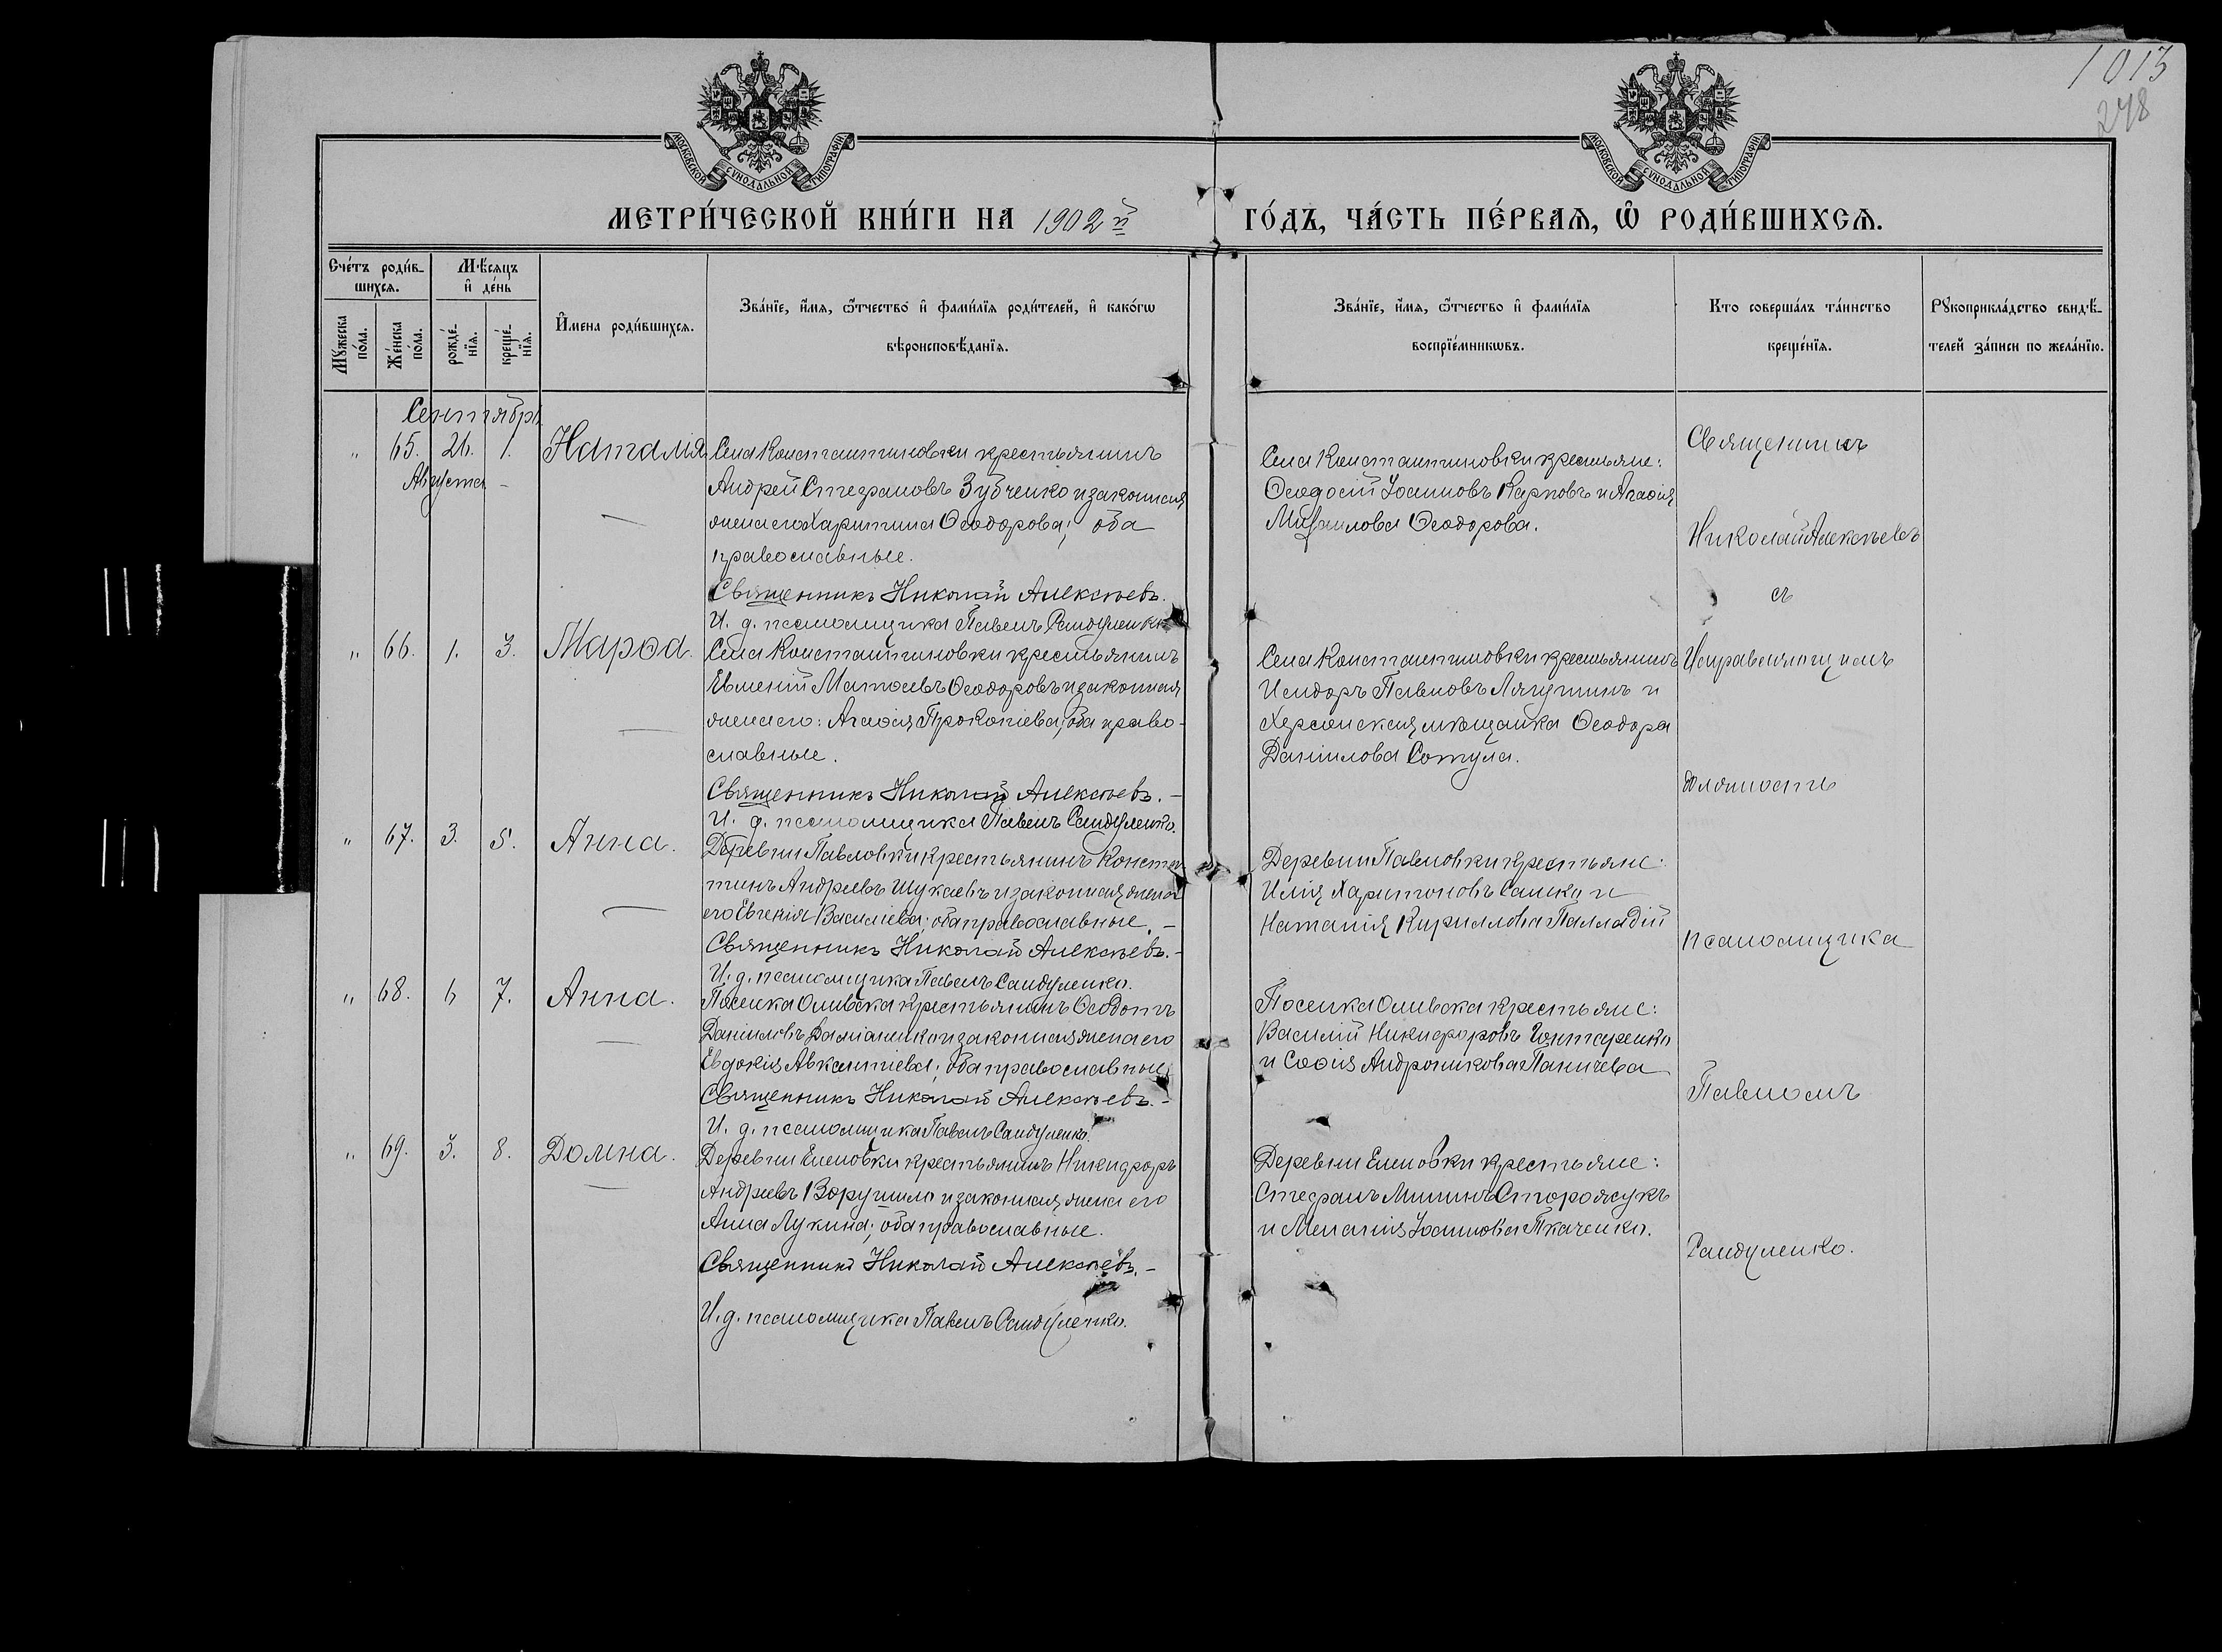 1013
278
МОСКОВСКОЙ СѴНОДАЛЬНОЙ ТИПОГРАФІИ
МОСКОВСКОЙ СѴНОДАЛЬНОЙ ТИПОГРАФІИ
МЕТРИ́ЧЕСКОЙ КНИ́ГИ НА 1902й ГО́ДЪ, ЧА́СТЬ ПЕ́РВАѦ, Ѡ РОДИ́ВШИХСѦ.
Сче́тъ роди́в-
шихсѧ.
Мѣ́сѧцъ
и҆ де́нь
Мꙋ́жеска по́ла.
Же́нска по́ла.
рожде́-нїѧ.
креще́-нїѧ.
И҆мена роди́вшихсѧ.
Зва́нїе, и҆́мѧ, ѻ҆́тчество и҆ фами́лїѧ роди́телей, и҆ како́гѡ
вѣроисповѣ́данїѧ.
Зва́нїе, и҆́мѧ, ѻ҆́тчество и҆ фами́лїѧ
воспрїе́мникѡвъ.
Кто соверша́лъ та́инство
креще́нїѧ.
Рꙋкоприкла́дство свидѣ́-
телей за́писи по жела́нїю.
Сентябрь
" 65. 26. 1. Наталія
Августа -
Села Константиновки крестьянинъ
Андрей Стефановъ Зубченко и законная
жена его Харитина Ѳеодорова; оба
православные.
Священникъ Николай Алексѣевъ.
И. д. псаломщика Павелъ Сандуленко
Села Константиновки крестьяне:
Ѳеодосій Іоанновъ Карповъ и Агаѳія
Михаилова Ѳеодорова.
" 66. 1. 3. Марѳа.
Села Константиновки крестьянинъ
Евменій Матѳеевъ Ѳеодоровъ и законная
жена его: Агаѳія Прокопіева; оба право-
славные.
Священникъ Николай Алексѣевъ. -
И. д. псаломщика Павелъ Сандуленко.
Села Константиновки крестьянинъ
Исидоръ Павловъ Лягушинъ и
Херсонская мѣщанка Ѳеодора
Даніилова Сотула.
" 67. 3. 5. Анна.
Деревни Павловки крестьянинъ Конста
тинъ Андреевъ Шукаевъ и законная жена
его Евгенія Василіева; оба православные. -
Священникъ Николай Алексѣевъ. -
И. д. псаломщика Павелъ Сандуленко.
Деревни Павловки крестьяне:
Илія Харитоновъ Сашко и
Наталія Кириллова Палладій
" 68. 6 7. Анна.
Поселка Ольвска крестьянинъ Ѳеодотъ
Даніиловъ Даміаненко и законная жена его
Евдокія Авксентіева; оба православные
Священникъ Николай Алексѣевъ. -
И. д. псаломщика Павелъ Сандуленко.
Поселка Ольвска крестьяне:
Василій Никифоровъ Гонтаренко
и Софія Андроникова Паничева
" 69. 3. 8. Домна.
Деревни Еленовки крестьянинъ Никифоръ
Андреевъ Ворушило и законная жена его
Анна Лукина; оба православные.
Священникъ Николай Алексѣевъ. -
И. д. псаломщика Павелъ Сандуленко.
Деревни Еленовки крестьяне:
Стефанъ Мининъ Сторожукъ
и Меланія Іоаннова Ткаченко.
Священникъ
Николай Алексѣевъ
съ
Исправляющимъ
должность
псаломщика
Павломъ
Сандуленко.